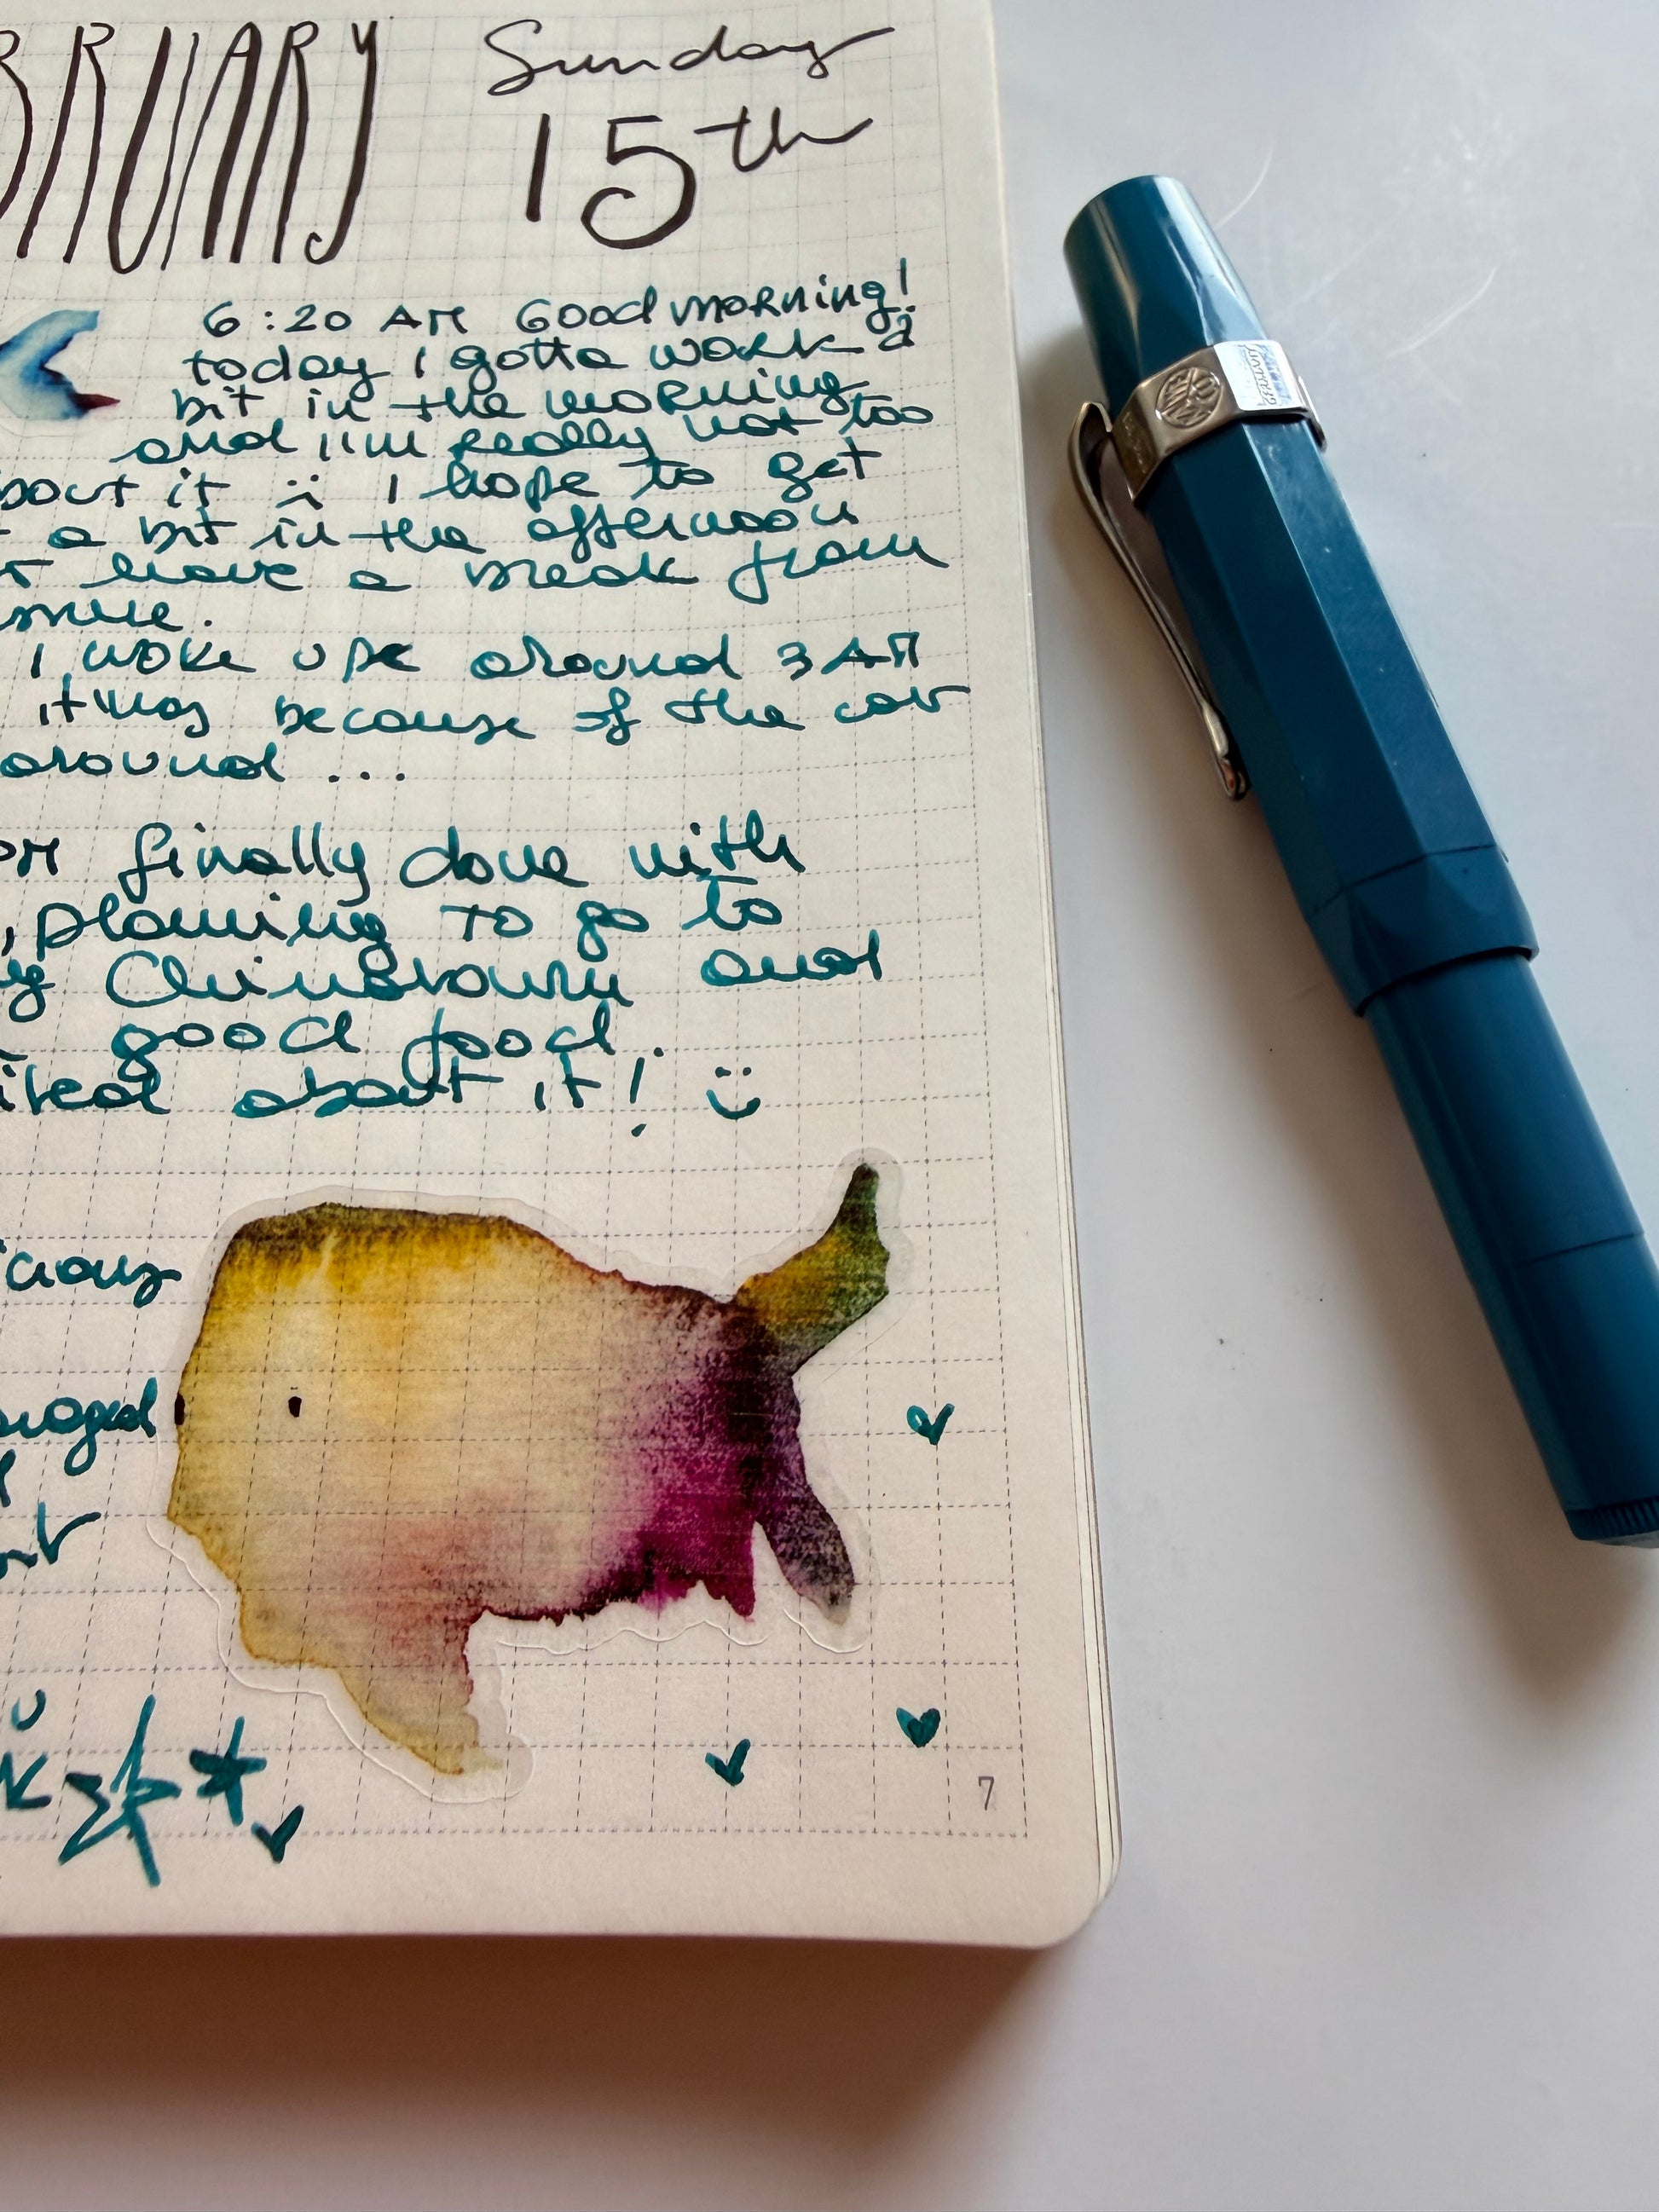 BRUARY Sunday
15th
6:20 AM Good morning!
today I gotta work a
bit in the morning
and I'm really not too
bout it :( I hope to get
a bit in the afternoon
have a break from
I woke up around 3 AM
because of the cat
around ...
PM finally done with
, planning to go to
Chinatown and
good food.
about it! :)
cious
7
KAWECO
GERMANY